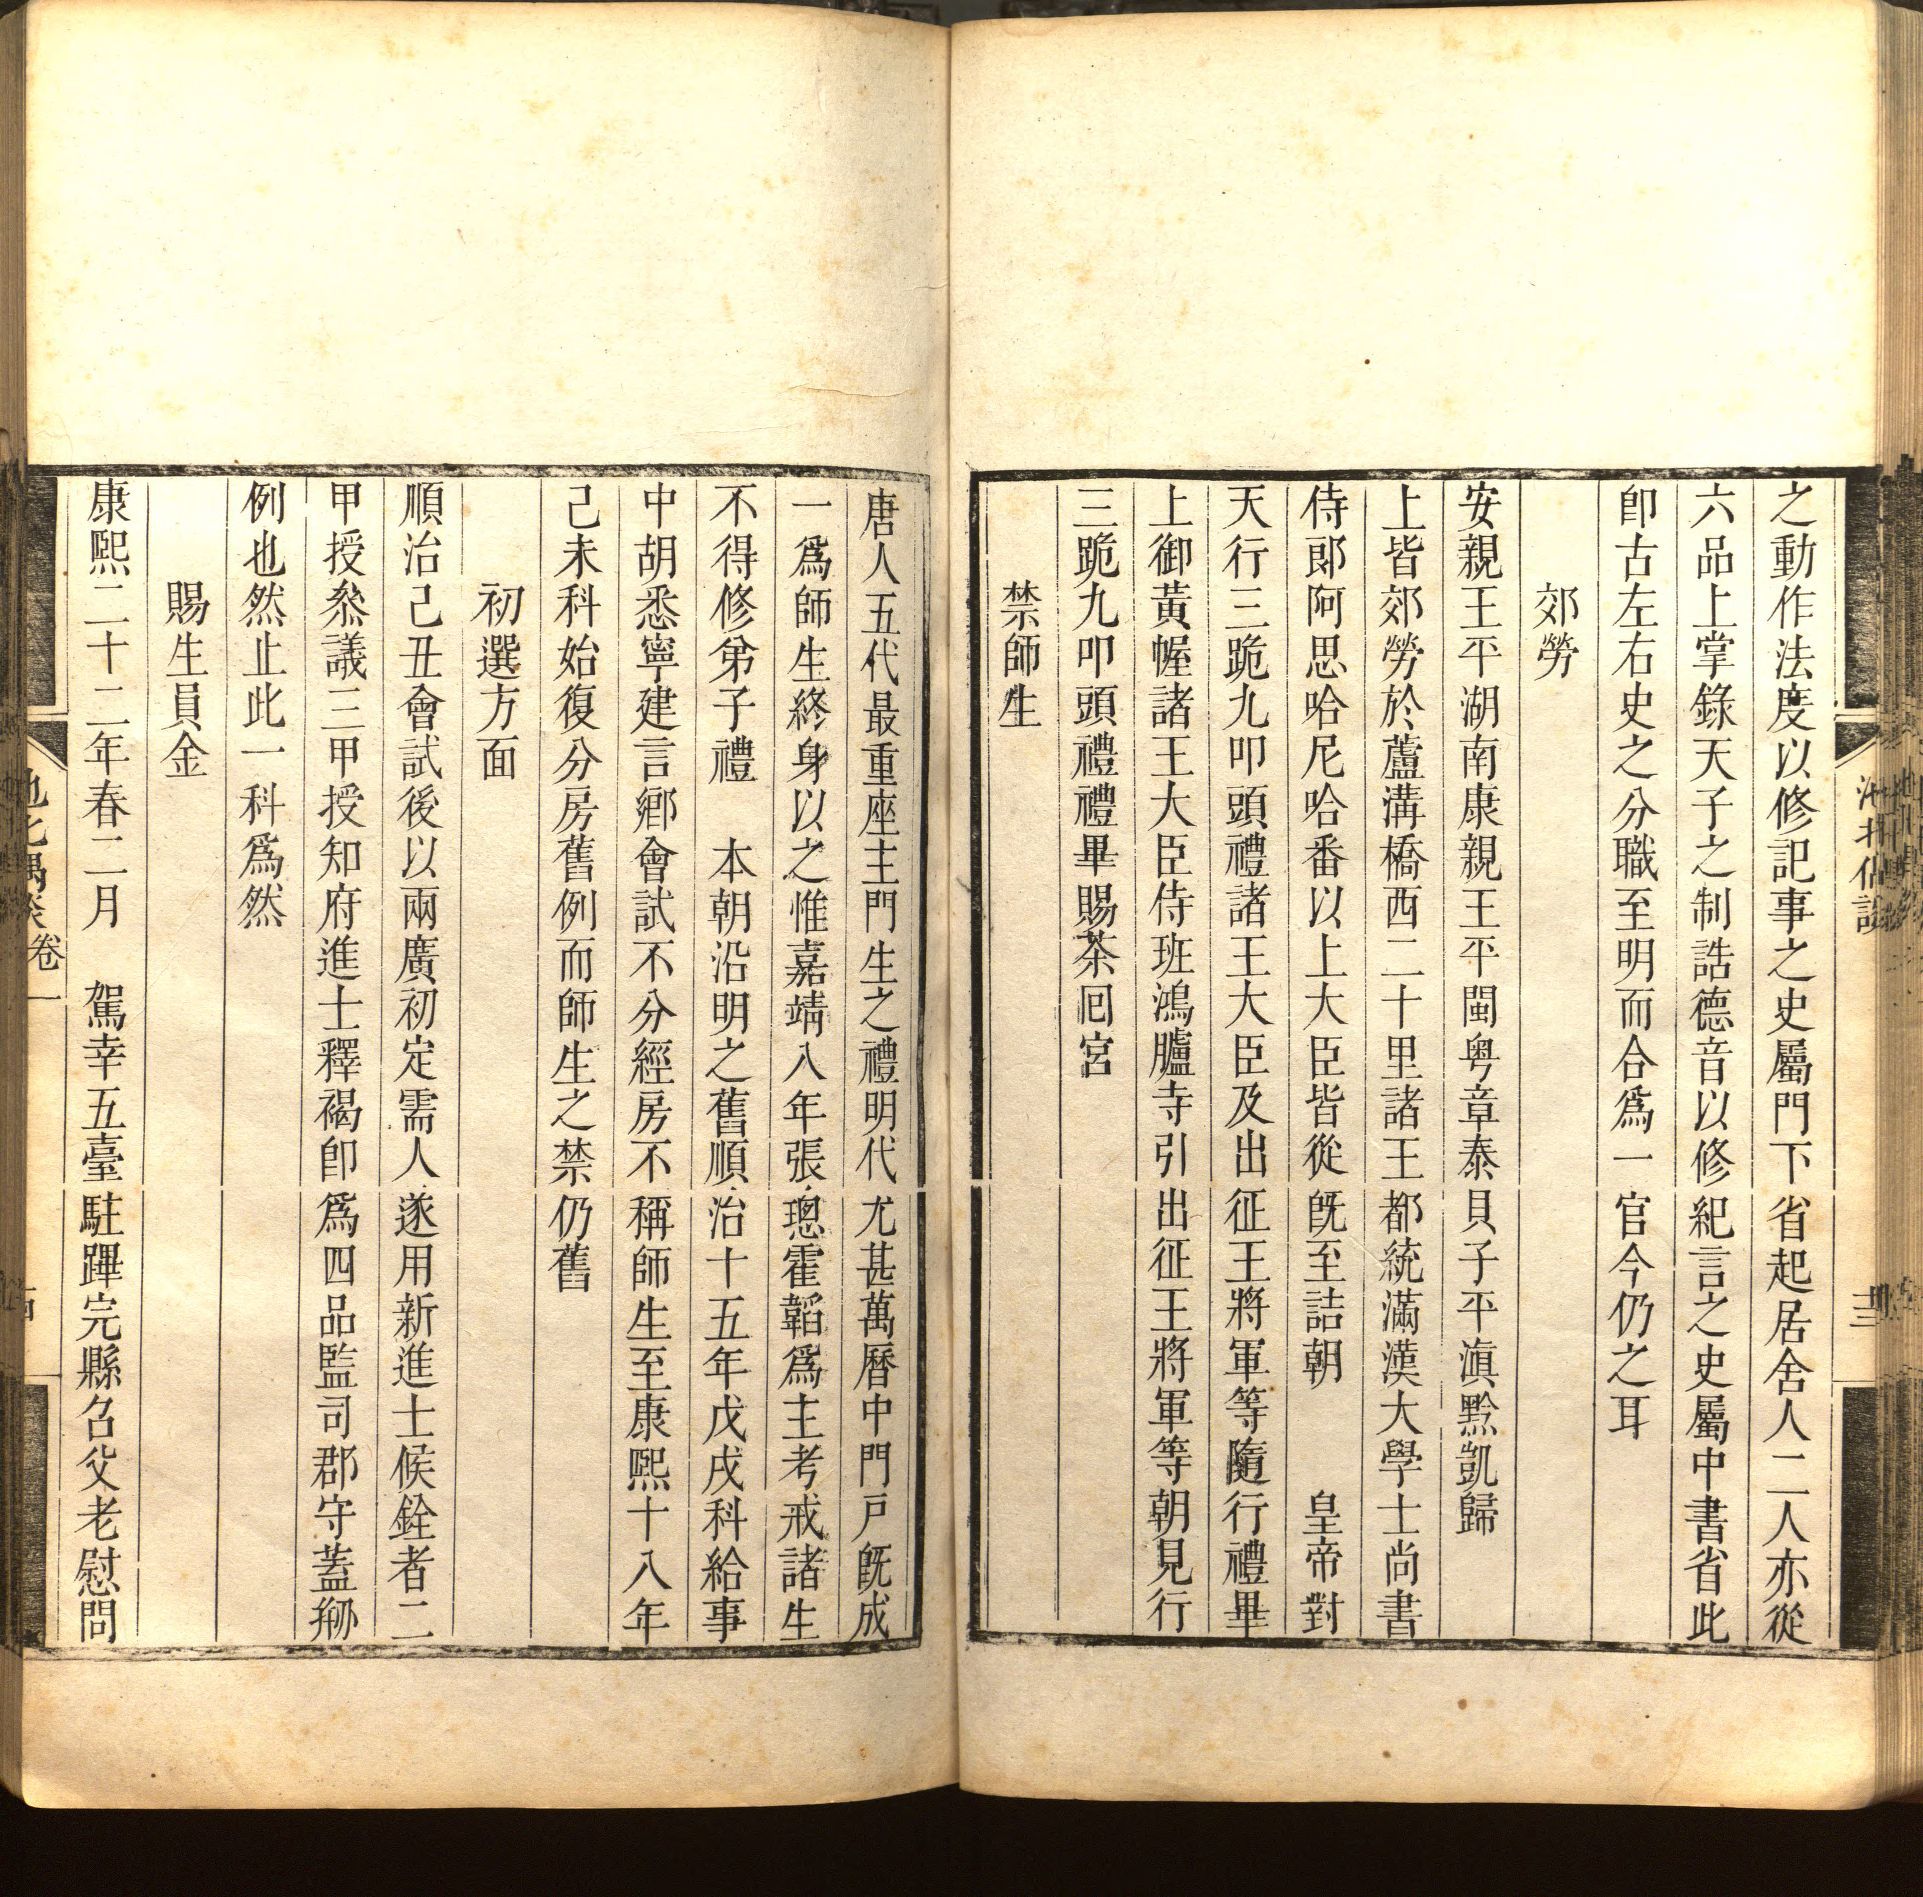 之動作法度以修記事之史屬門下省起居舍人二人亦從
六品上掌錄天子之制誥德音以修紀言之史屬中書省此
卽古左右史之分職至明而合爲一官今仍之耳
郊勞
安親王平湖南康親王平閩粤章泰貝子平滇黔凱歸
上皆郊勞於蘆溝橋西二十里諸王都統滿漢大學士尚書
侍郞阿思哈尼哈番以上大臣皆從旣至詰朝　皇帝對
天行三跪九叩頭禮諸王大臣及出征王將軍等隨行禮畢
上御黃幄諸王大臣侍班鴻臚寺引出征王將軍等朝見行
三跪九叩頭禮禮畢賜茶囘宮
禁師生
唐人五代最重座主門生之禮明代尤甚萬曆中門戶旣成
一爲師生終身以之惟嘉靖八年張璁霍韜爲主考戒諸生
不得修弟子禮　本朝沿明之舊順治十五年戊戌科給事
中胡悉寧建言鄉會試不分經房不稱師生至康熙十八年
己未科始復分房舊例而師生之禁仍舊
初選方面
順治己丑會試後以兩廣初定需人遂用新進士候銓者二
甲授叅議三甲授知府進士釋褐卽爲四品監司郡守蓋剏
例也然止此一科爲然
賜生員金
康熙二十二年春二月　駕幸五臺駐蹕完縣名父老慰問
池北偶談卷一